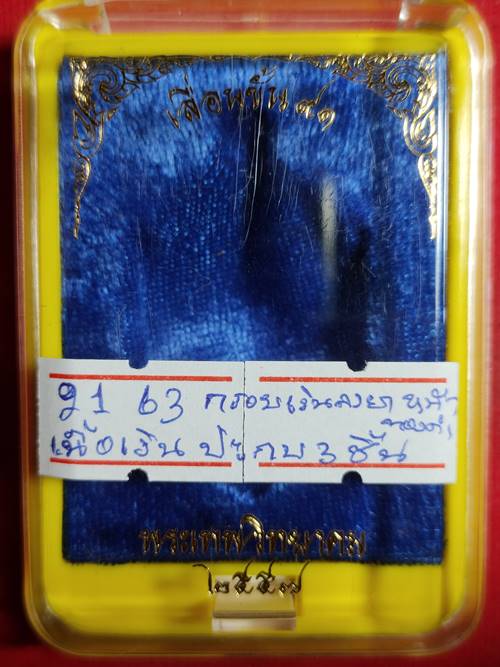 เลื่อนขั้น ๙๑
91 63 กรอบเงินลงยา หน้า
ทองคำ
เนื้อเงิน ประกบ 3 ชิ้น
พระเทพวิทยาคม
๒๕๕๗